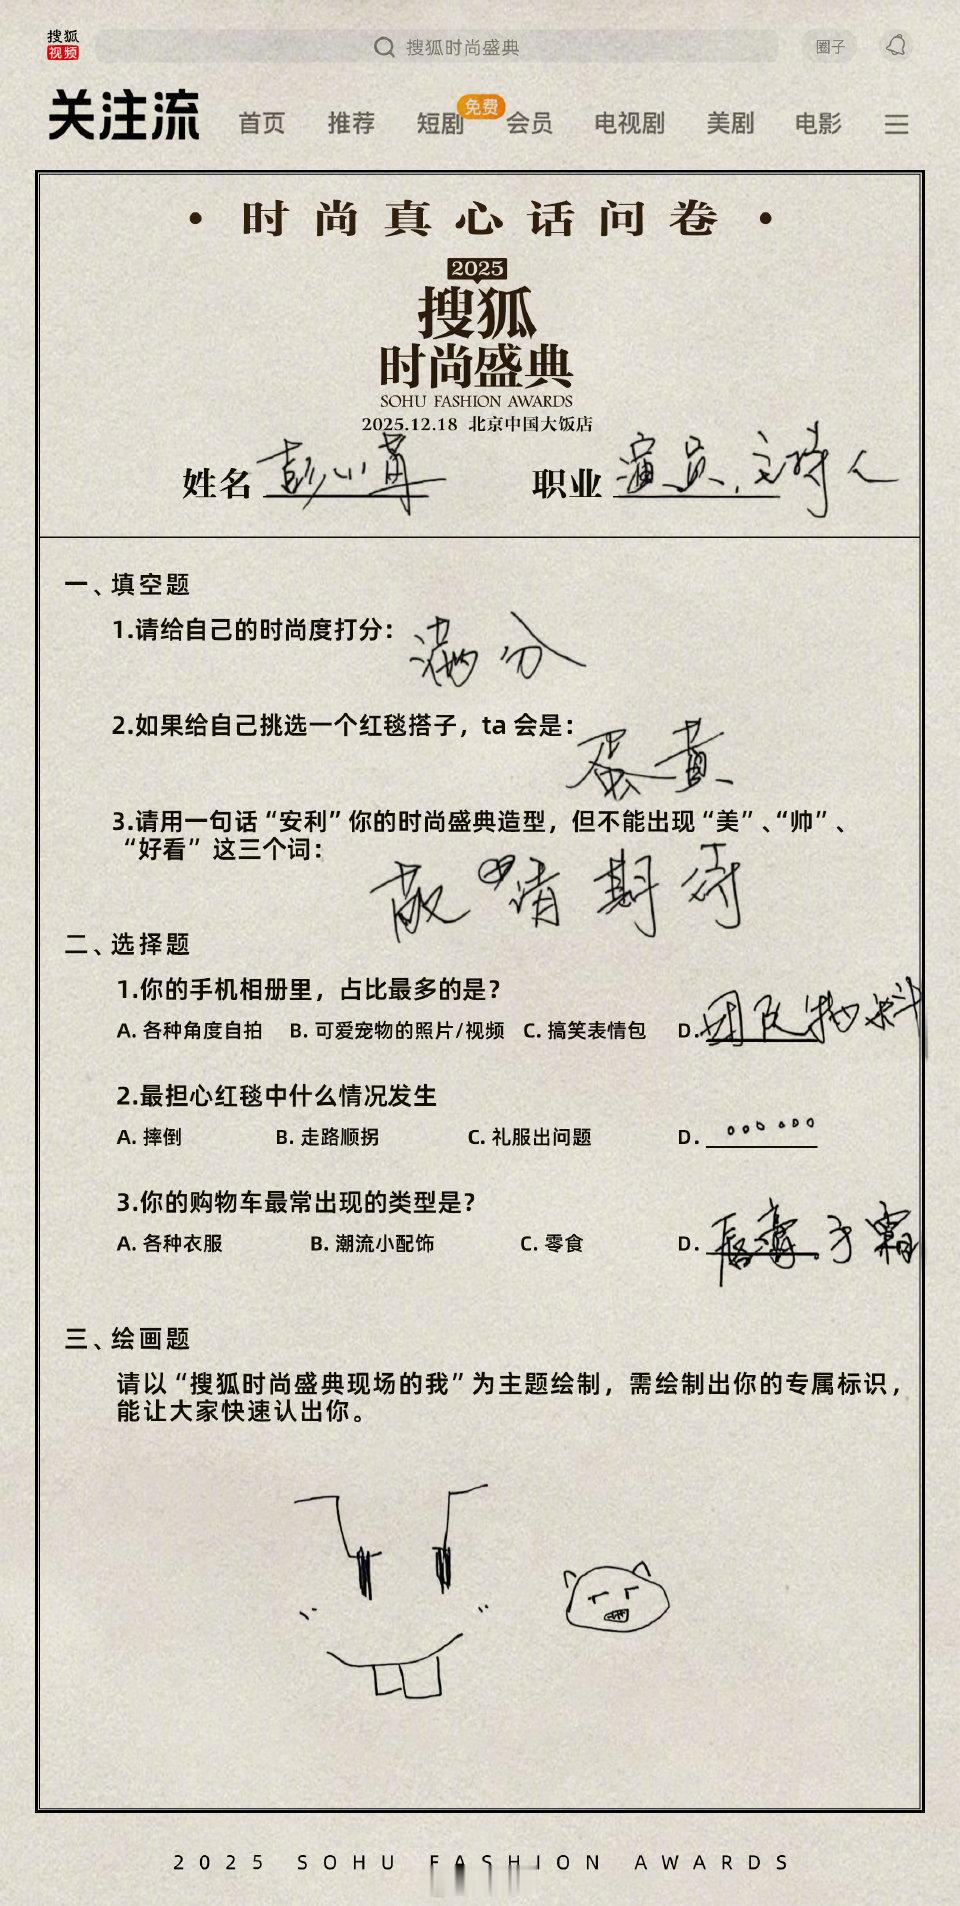 搜狐
视频
搜狐时尚盛典
圈子
关注流 首页 推荐 短剧 免费 会员 电视剧 美剧 电影
·时尚真心话问卷·
2025
搜狐
时尚盛典
SOHU FASHION AWARDS
2025.12.18 北京中国大饭店
姓名 彭小苒 职业 演员,主持人
一、填空题
1.请给自己的时尚度打分: 满分
2.如果给自己挑选一个红毯搭子,ta 会是: 蛋黄
3.请用一句话“安利”你的时尚盛典造型,但不能出现“美”、“帅”、
“好看” 这三个词:
敬请期待
二、选择题
1.你的手机相册里,占比最多的是?
A. 各种角度自拍 B. 可爱宠物的照片/视频 C. 搞笑表情包 D. 团队物料
2.最担心红毯中什么情况发生
A. 摔倒 B. 走路顺拐 C. 礼服出问题 D. 。。。。。。
3.你的购物车最常出现的类型是?
A. 各种衣服 B. 潮流小配饰 C. 零食 D. 唇膏.手霜
三、绘画题
请以“搜狐时尚盛典现场的我”为主题绘制,需绘制出你的专属标识,
能让大家快速认出你。
2025 SOHU FASHION AWARDS